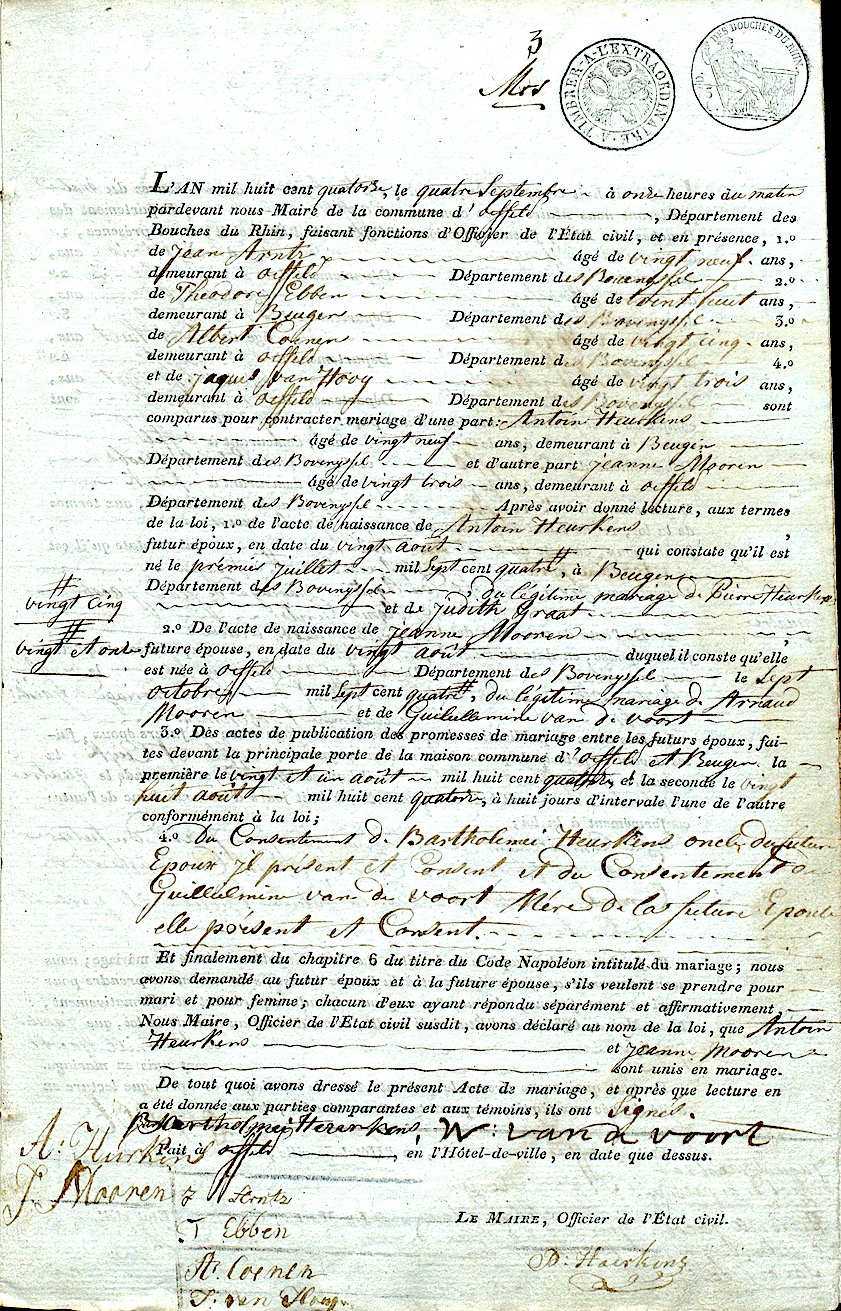 3
Mos
A TIMBRER-A-L'EXTRAORDINAIRE
DES BOUCHES DU RHIN
L'AN mil huit cent quatorze, le quatre Septembre à onze heures du matin
pardevant nous Maire de la commune d' oeffeld, Département des
Bouches du Rhin, faisant fonctions d'Officier de l'État civil, et en présence, 1.º
de Jean Arntz âgé de vingt neuf ans,
demeurant à oeffeld Département des Bovenyssel 2.º
de Théodore Ebben âgé de vint huit ans,
demeurant à Beugen Département des Bovenyssel 3.º
de Albert Coenen âgé de vingt cinq ans,
demeurant à oeffeld Département des Bovenyssel 4.º
et de jaques van Hooy âgé de vingt trois ans,
demeurant à oeffeld Département des Bovenyssel sont
comparus pour contracter mariage d'une part: Antoin Heurkens
âgé de vingt neuf ans, demeurant à Beugen
Département des Bovenyssel et d'autre part jeanne Mooren
âgé de vingt trois ans, demeurant à oeffeld
Département des Bovenyssel Après avoir donné lecture, aux termes
de la loi, 1.º de l'acte de naissance de Antoin Heurkens,
futur époux, en date du vingt août qui constate qu'il est
né le premier juillet mil sept cent quatre #, à Beugen
# vingt cinq
Département des Bovenyssel, du légitime mariage de Pierre Heurkens
et de judith Graat
2.º De l'acte de naissance de jeanne Mooren,
# vingt et onze
future épouse, en date du vingt août duquel il conste qu'elle
est née à oeffeld Département des Bovenyssel le sept
octobre mil sept cent quatre #, du légitime mariage de Arnaud
Mooren et de Guilullemine van de voort
3.º Des actes de publication des promesses de mariage entre les futurs époux, fai-
tes devant la principale porte de la maison commune d' oeffeld et Beugen la
première le vingt et un août mil huit cent quatorze, et la seconde le vingt
huit août mil huit cent quatorze, à huit jours d'intervale l'une de l'autre
conformément à la loi;
4.º Du Consentement d. Bartholemei Heurkens oncle du future
Epoux jl présent et Consent et du Consentement d
Guillulmine van de voort Mére de la future Epouse
elle présent et Consent.
Et finalement du chapitre 6 du titre du Code Napoléon intitulé du mariage; nous
avons demandé au futur époux et à la future épouse, s'ils veulent se prendre pour
mari et pour femme; chacun d'eux ayant répondu séparément et affirmativement,
Nous Maire, Officier de l'Etat civil susdit, avons déclaré au nom de la loi, que Antoin
Heurkens et jeanne Mooren
sont unis en mariage.
De tout quoi avons dressé le présent Acte de mariage, et après que lecture en
a été donnée aux parties comparantes et aux témoins, ils ont signés.
Bartholmei Heurkens W: van de voort
A: Hurkens
Fait à oeffeld, en l'Hôtel-de-ville, en date que dessus.
J. Mooren
J Arntz
LE MAIRE, Officier de l'État civil.
T Ebben
A. Coenen
J. van Hooy